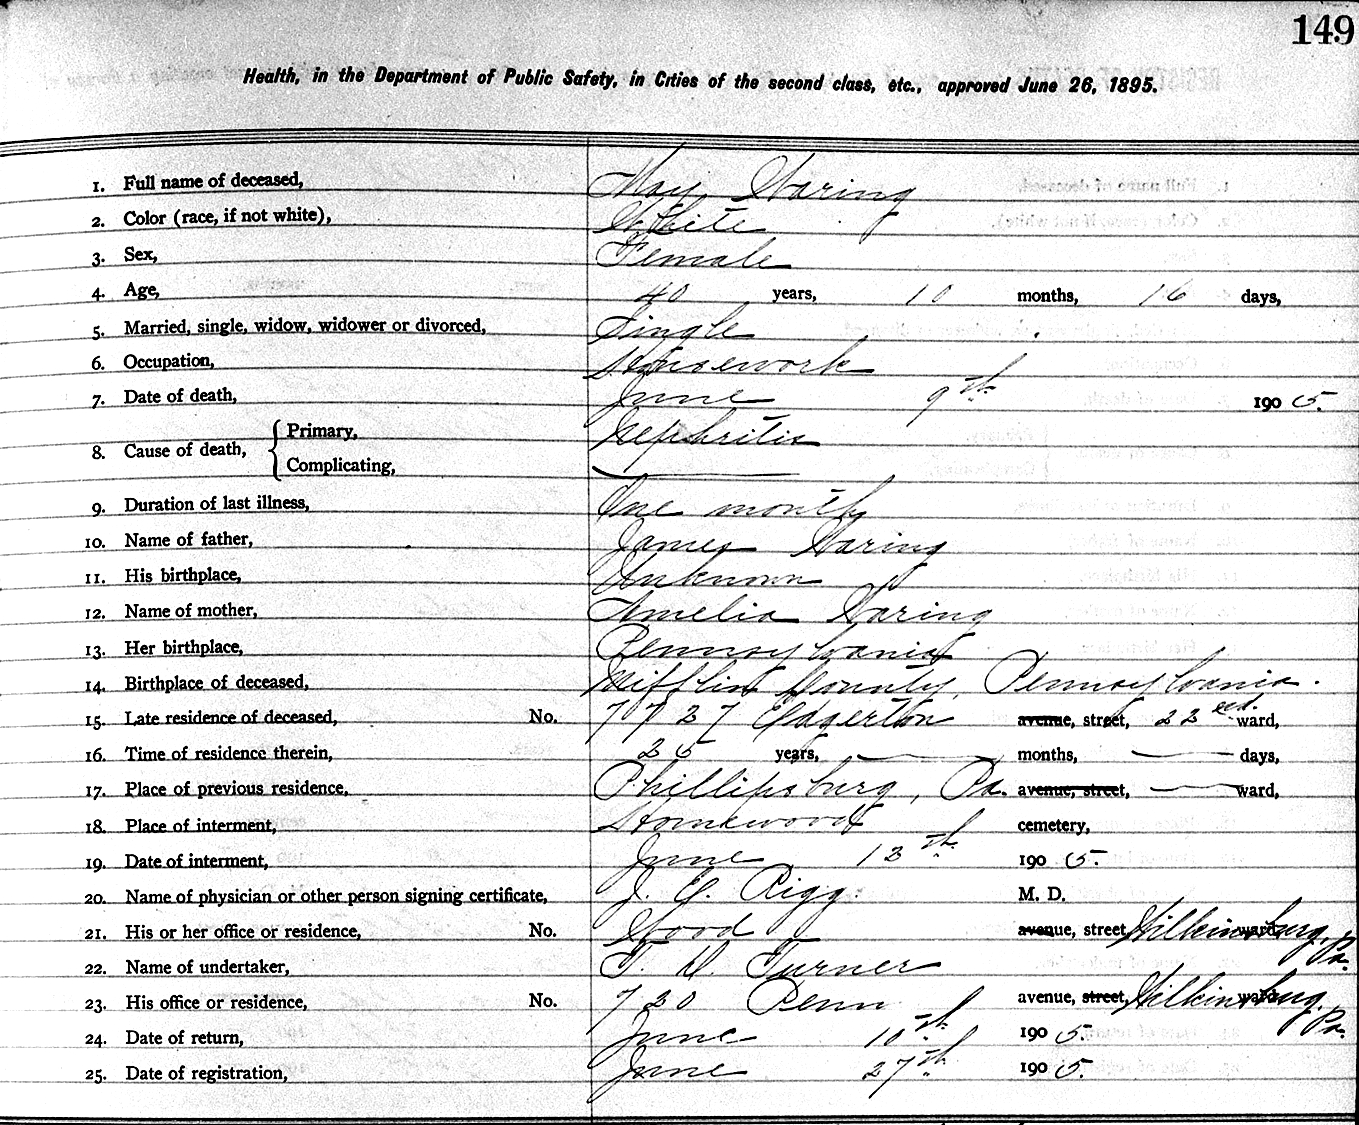 149
Health, in the Department of Public Safety, in Cities of the second class, etc., approved June 26, 1895.
1. Full name of deceased, May Waring
2. Color (race, if not white), White
3. Sex, Female
4. Age, 40 years, 10 months, 16 days,
5. Married, single, widow, widower or divorced, Single
6. Occupation, Housework
7. Date of death, June 9th 1905.
8. Cause of death, { Primary, Nephritis
Complicating,
9. Duration of last illness, One month
10. Name of father, James Waring
11. His birthplace, Unknown
12. Name of mother, Amelia Waring
13. Her birthplace, Pennsylvania
14. Birthplace of deceased, Mifflin County, Pennsylvania.
15. Late residence of deceased, No. 7727 Edgerton avenue, street, 22nd. ward,
16. Time of residence therein, 25 years, months, days,
17. Place of previous residence, Phillipsburg, Pa. avenue, street, ward,
18. Place of interment, Homewood cemetery,
19. Date of interment, June 12th 1905.
20. Name of physician or other person signing certificate, J. G. Rigg. M. D.
21. His or her office or residence, No. Wood avenue, street, ward, Wilkinsburg, Pa.
22. Name of undertaker, T. D. Turner
23. His office or residence, No. 720 Penn avenue, street, ward, Wilkinsburg, Pa.
24. Date of return, June 10th 1905.
25. Date of registration, June 27th 1905.